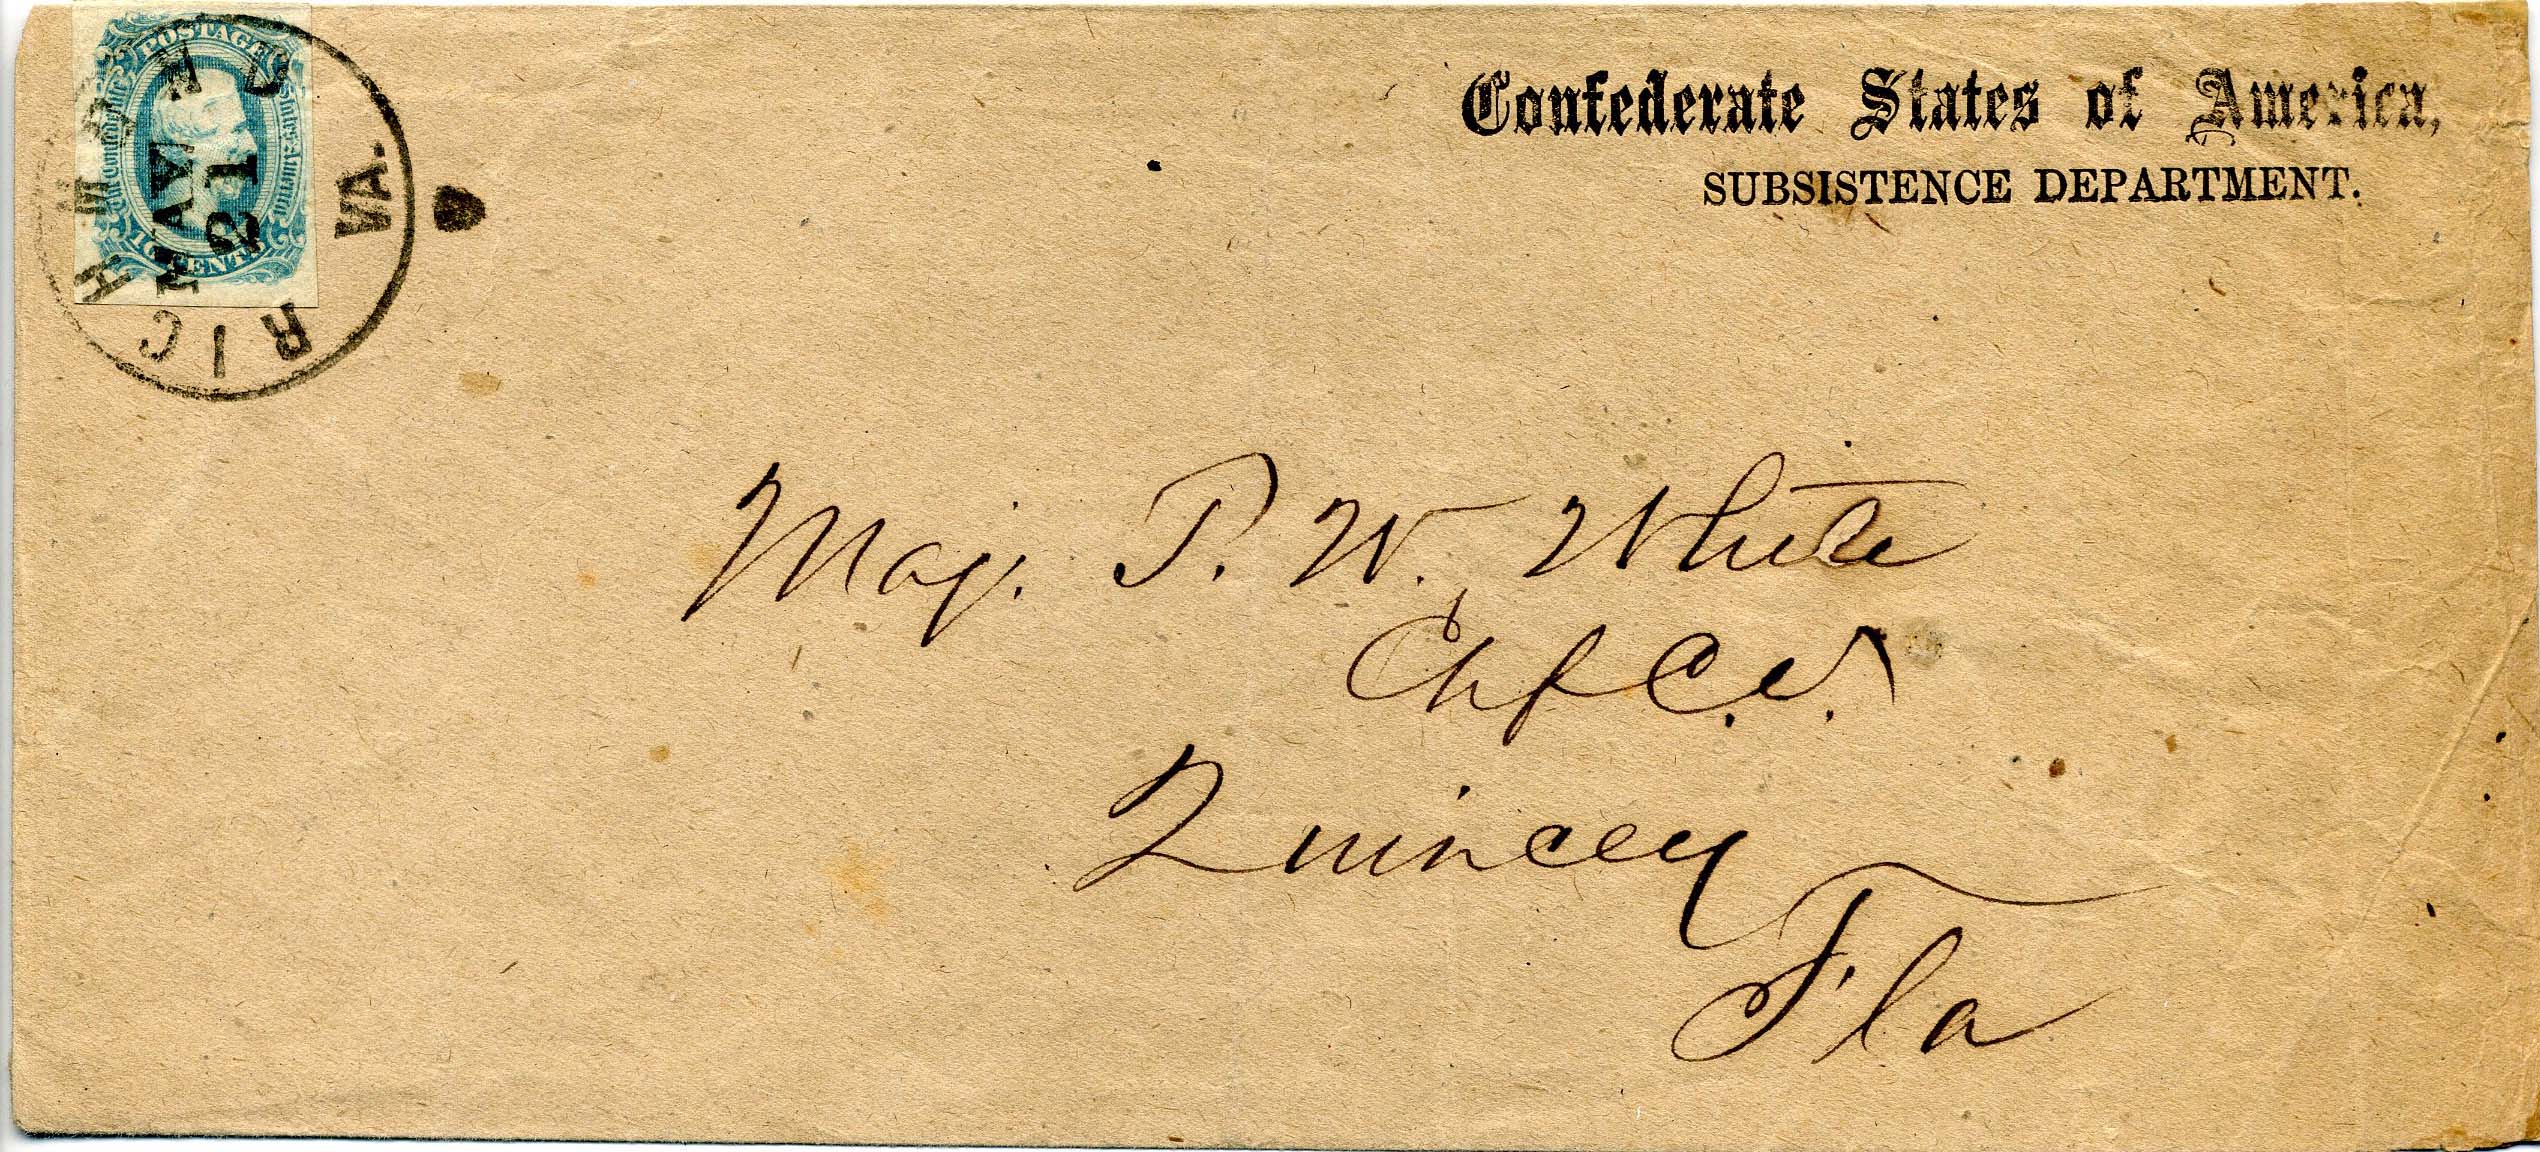 POSTAGE
The Confederate States of America
10 CENTS
RICHMOND VA.
MAY
21
Confederate States of America,
SUBSISTENCE DEPARTMENT.
Maj. P. W. White
Chf C.S.
Quincey
Fla